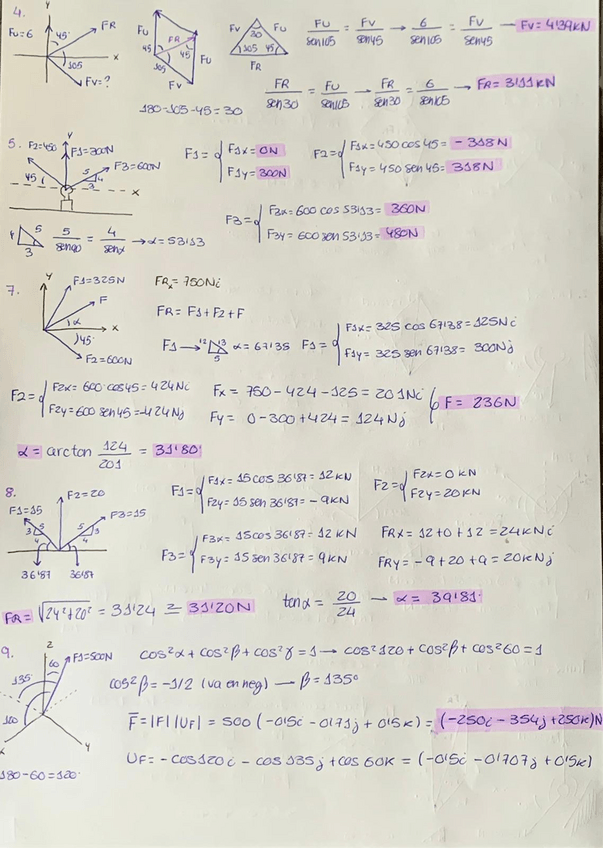 4.
y
FR
Fu=6
45°
x
105
Fv=?
45
FR
45
Fu
105
Fv
Fv
Fu
30
105
45
FR
Fu/sen105 = Fv/sen45 → 6/sen105 = Fv/sen45 → Fv=4'39kN
FR/sen30 = Fu/sen105 → FR/sen30 = 6/sen105 → FR=3'11kN
180-105-45=30
5.
y
F2=450
F1=300N
F3=600N
45
5
4
3
x
F1= F1x= 0N
F1y= 300N
F2= F1x=450 cos 45= -318N
F1y=450 sen 45= 318N
F3= F3x=600 cos 53'13= 360N
F3y=600 sen 53'13= 480N
4
5
3
5/sen90 = 4/senα → α=53'13
7.
y
F1=325N
F
α
x
45°
F2=600N
FRx=750Ni
FR=F1+F2+F
F1→ 12 13 5 α=67'35
F1= F1x=325 cos 67'38=125Ni
F1y=325 sen 67'38= 300Nj
F2= F2x=600·cos45=424Ni
F2y=600 sen 45=-424Nj
Fx= 750-424-125=201Ni
Fy= 0-300+424=124Nj
F=236N
α= arctan 124/201 = 31'80°
8.
F2=20
F1=15
F3=15
3 5
4
5 3
4
36'87
36'87
F1= F1x=15cos 36'87=12kN
F2y=15 sen 36'87= -9kN
F2= F2x=0 kN
F2y=20kN
F3= F3x=15cos 36'87= 12 kN
F3y=15 sen 36'87= 9kN
FRx= 12+0+12 = 24kNi
FRy= -9+20+9= 20kNj
FR= √24²+20² = 31'24 ≃ 31'20N
tanα = 20/24 → α= 39'81°
9.
z
60
F1=500N
135
120
x
y
180-60=120°
cos²α+cos²β+cos²γ=1 → cos²120+cos²β+cos²60=1
cos²β=-1/2 (va en neg) → β=135°
F̅=|F||UF|= 500 (-0'5i -0'71j +0'5k)= (-250i -354j +250k)N
UF= -cos120i - cos135j +cos 60k = (-0'5i -0'707j +0'5k)